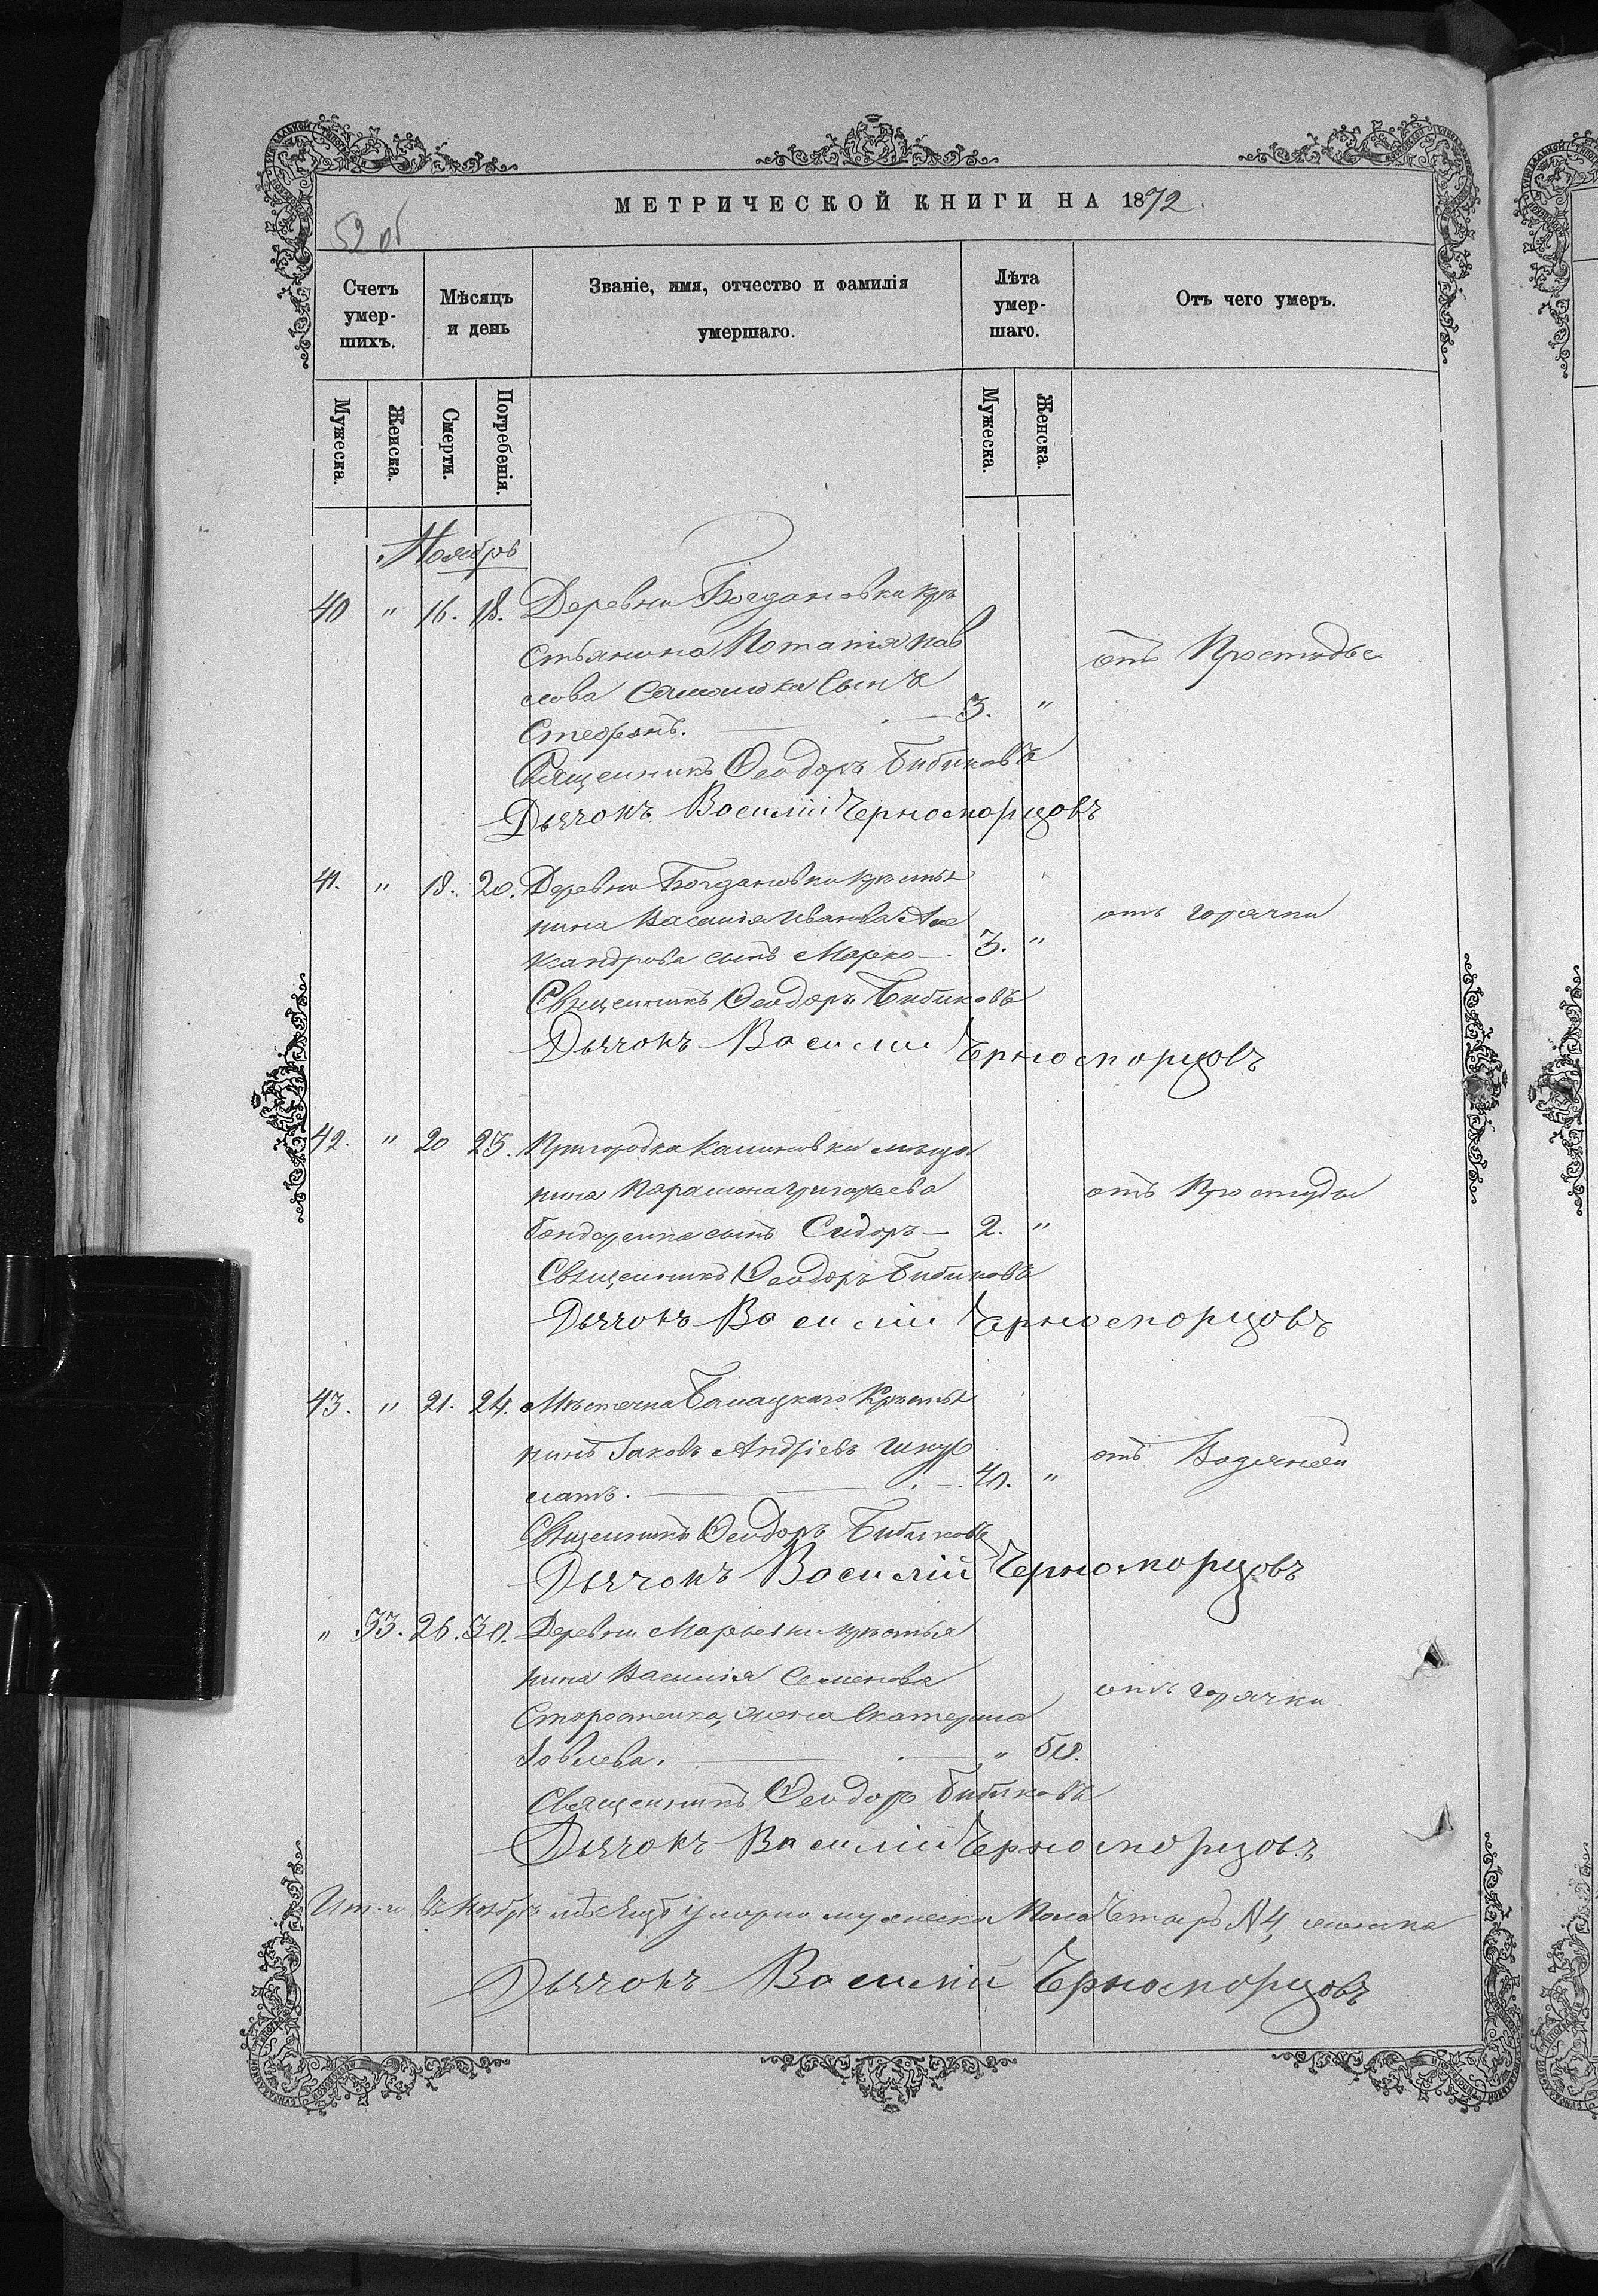 МЕТРИЧЕСКОЙ КНИГИ НА 1872.
52 об
Счетъ умер-шихъ.
Мѣсяцъ и день
Званіе, имя, отчество и фамилія умершаго.
Лѣта умер-шаго.
Отъ чего умеръ.
Мужеска.
Женска.
Смерти.
Погребенія.
Мужеска.
Женска.
Ноябрь
40 " 16. 18. Деревни Богдановки кре
стьянина Потапія Пав
лова сынъ отъ Простуды
Стефанъ. 3. "
Священникъ Ѳеодоръ Бибиковъ
Дьячокъ Василій Черноморцовъ
41. " 18. 20. Деревни Богдановки крестья
нина Василія Иванова Але отъ горячки
ксандрова сынъ Марко 3. "
Священникъ Ѳеодоръ Бибиковъ
Дьячокъ Василій Черноморцовъ
42. " 20 23. Пригородка Калиновки мѣща
нина Парамона Григорьева отъ Простуды
Бондаренка сынъ Сидоръ 2. "
Священникъ Ѳеодоръ Бибиковъ
Дьячокъ Василій Черноморцовъ
43. " 21. 24. Мѣстечка Крестья
нинъ Іаковъ Андріевъ Шкур отъ Водяной
латъ. 40. "
Священникъ Ѳеодоръ Бибиковъ
Дьячокъ Василій Черноморцовъ
" 33. 26. 30. Деревни Марьевки крестья
нина Василія Семенова отъ горячки
Старостенка, жена Екатерина
Іовлева. " 50.
Священникъ Ѳеодоръ Бибиковъ
Дьячокъ Василій Черноморцовъ
Итого въ Ноябрѣ мѣсяцѣ умерло мужеска Пола Четыръ N 4, женска
Дьячокъ Василій Черноморцовъ